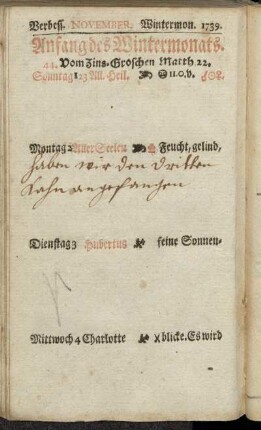 Verbess. NOVEMBER, Wintermon. 1739.
Anfang des Wintermonats.
44. Vom Zins-Groschen Matth 22.
Sonntag 1 23 All. Heil. u.o.v.
Montag 2 Aller Seelen Feucht, gelind,
haben wir den dritten
Zahn angefangen
Dienstag 3 Hubertus feine Sonnen-
Mittwoch 4 Charlotte blicke. Es wird